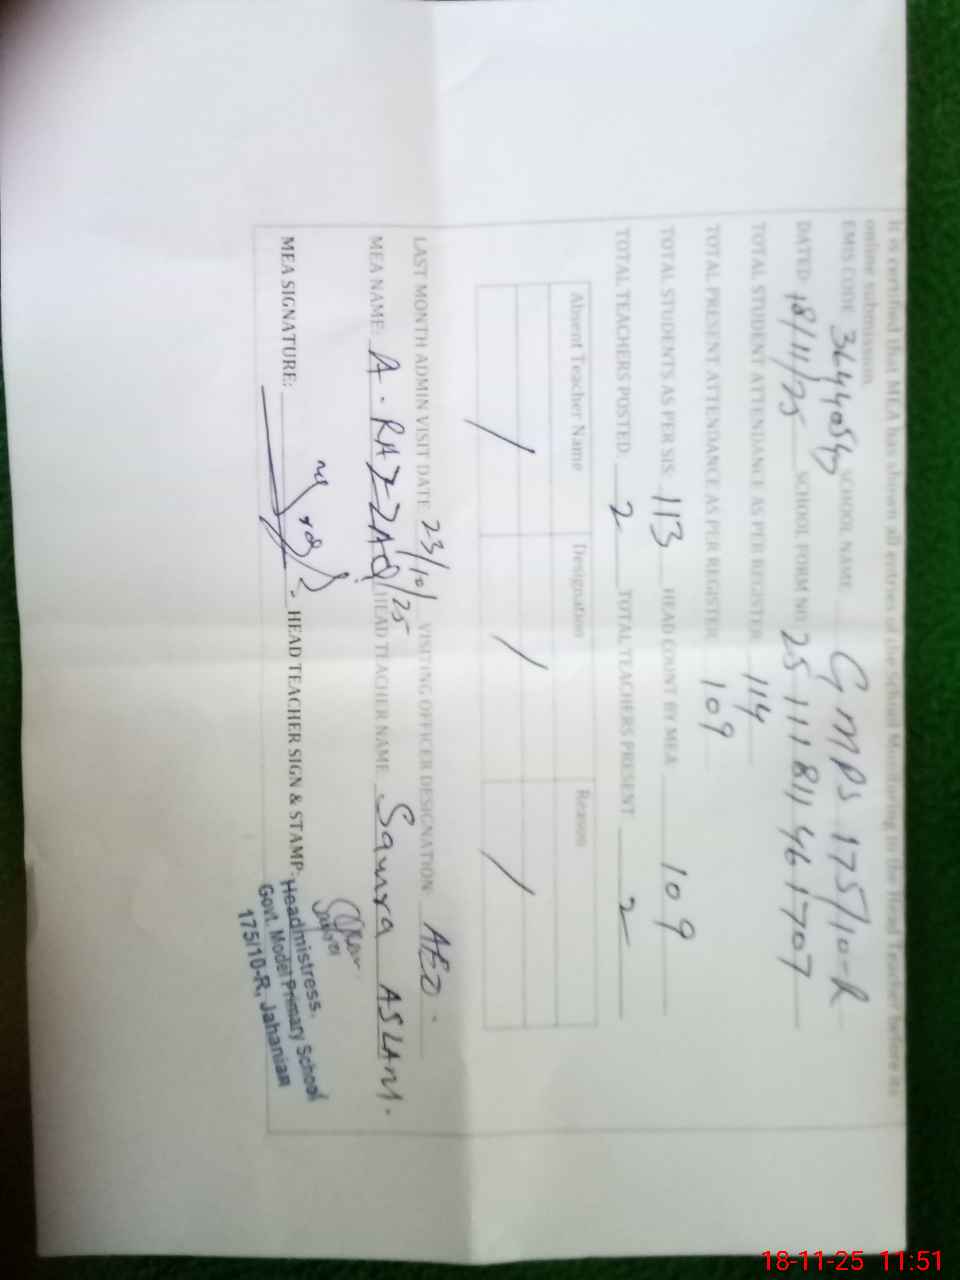 It is certified that MEA has shown all entries of the School Monitoring to the Head Teacher before its
online submission.
EMIS CODE SCHOOL NAME GMPS 175/10-R
DATED: 18/11/25 SCHOOL FORM NO: 25 111811 461707
TOTAL STUDENT ATTENDANCE AS PER REGISTER 114
TOTAL PRESENT ATTENDANCE AS PER REGISTER 109
TOTAL STUDENTS AS PER SIS 113 HEAD COUNT BY MEA 109
TOTAL TEACHERS POSTED: 2 TOTAL TEACHERS PRESENT 2
Absent Teacher Name Designation Reason
/ / /
LAST MONTH ADMIN VISIT DATE 23/10/25 VISITING OFFICER DESIGNATION AEO.
MEA NAME: A. RAZZAQ HEAD TEACHER NAME Samra ASLAM.
MEA SIGNATURE: HEAD TEACHER SIGN & STAMP:
Headmistress.
Govt. Model Primary School
175/10-R, Jahanian
18-11-25 11:51